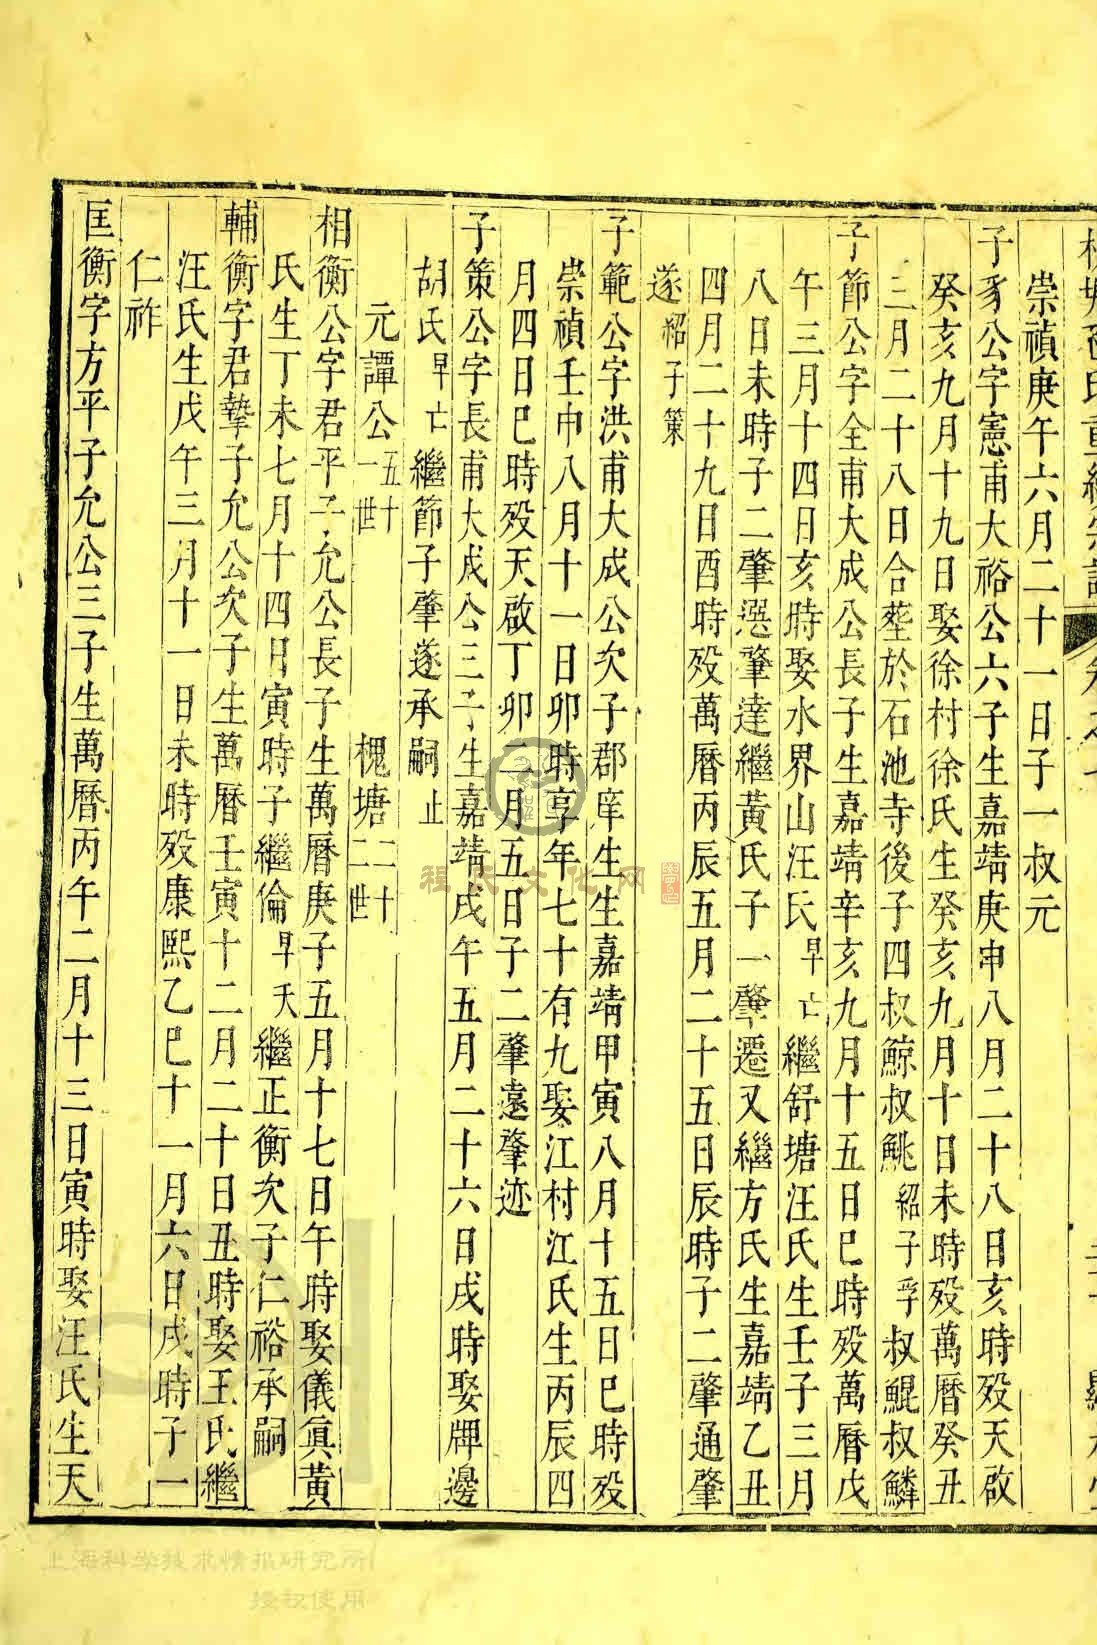 崇禎庚午六月二十一日子一叔元
子豸公字憲甫大裕公六子生嘉靖庚申八月二十八日亥時歿天啟
癸亥九月十九日娶徐村徐氏生癸亥九月十日未時歿萬曆癸丑
三月二十八日合塟於石池寺後子四叔鯨叔鮡紹子孚叔鯤叔鱗
子節公字全甫大成公長子生嘉靖辛亥九月十五日巳時歿萬曆戊
午三月十四日亥時娶水界山汪氏早亡繼舒塘汪氏生壬子三月
八日未時子二肇選肇達繼黃氏子一肇遷又繼方氏生嘉靖乙丑
四月二十九日酉時歿萬曆丙辰五月二十五日辰時子二肇通肇
遂紹子策
子範公字洪甫大成公次子郡庠生生嘉靖甲寅八月十五日巳時歿
崇禎壬申八月十一日卯時享年七十有九娶江村江氏生丙辰四
月四日巳時歿天啟丁卯二月五日子二肇遠肇迹
子策公字長甫大成公三子生嘉靖戊午五月二十六日戌時娶牌邊
胡氏早亡繼節子肇遂承嗣止
元譚公五十一世 槐塘二十二世
相衡公字君平子允公長子生萬曆庚子五月十七日午時娶儀眞黃
氏生丁未七月十四日寅時子繼倫早夭繼正衡次子仁裕承嗣
輔衡字君摯子允公次子生萬曆壬寅十二月二十日丑時娶王氏繼
汪氏生戊午三月十一日未時歿康熙乙巳十一月六日戌時子一
仁祚
匡衡字方平子允公三子生萬曆丙午二月十三日寅時娶汪氏生天
程氏文化网
上海科学技术情报研究所
授权使用